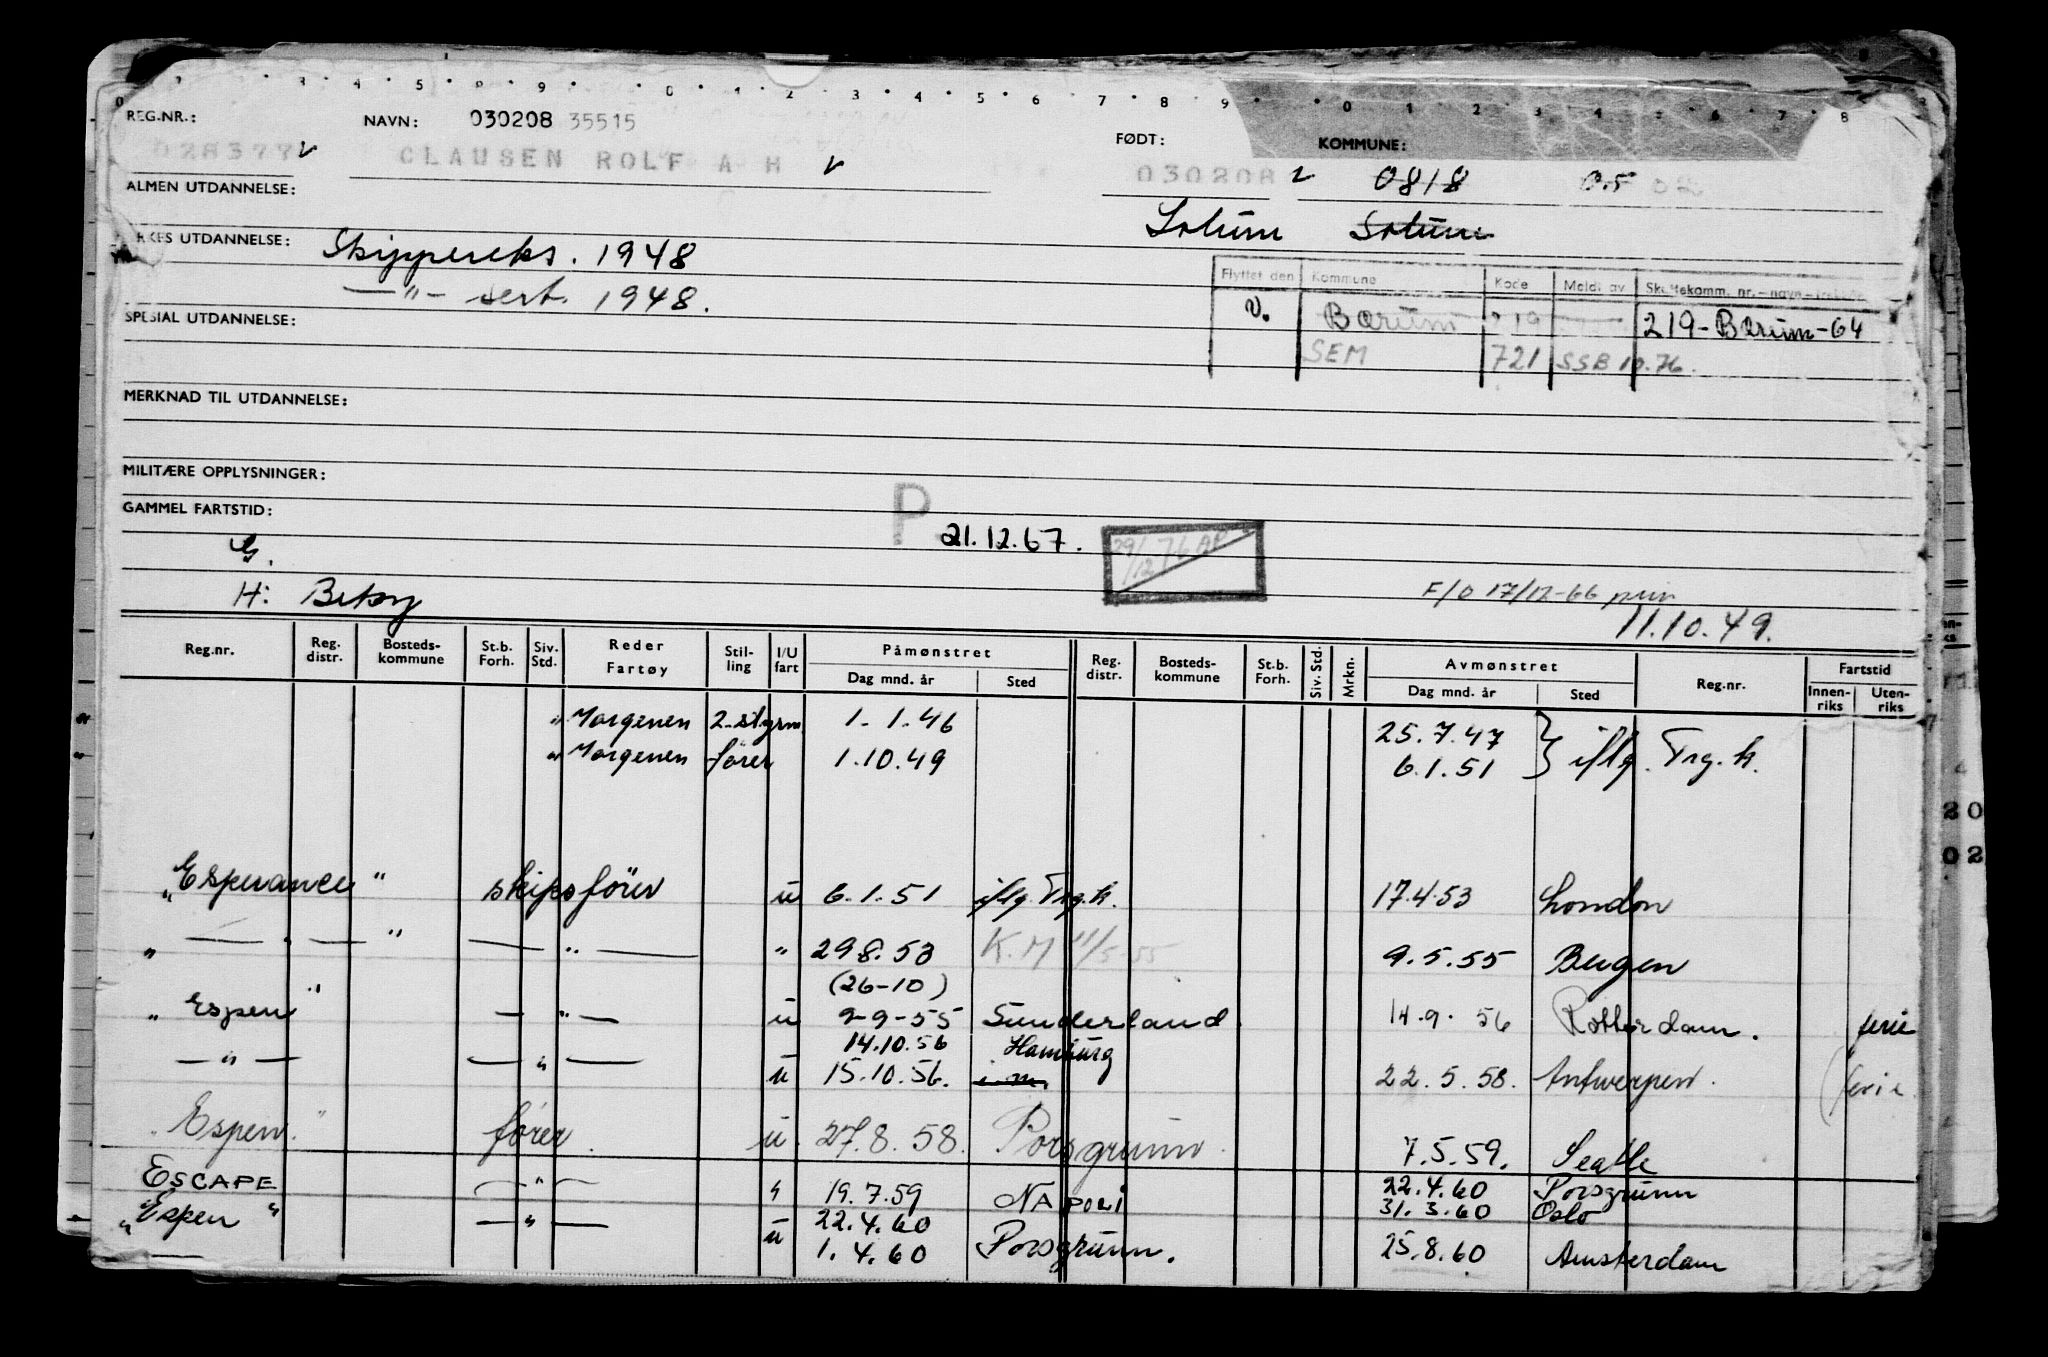 REG.NR.:
NAVN: 030208 35515
FØDT:
KOMMUNE:
028377 v CLAUSEN ROLF A H v 030208 v 0818 0.5 02
ALMEN UTDANNELSE:
Solum Solum
YRKES UTDANNELSE: Skippereks. 1948
— " — sert. 1948.
Flyttet den Kommune Kode Meldt av Skattekomm. nr. – navn –
v. Bærum 219 219-Bærum-64
SEM 721 SSB 10.76.
SPESIAL UTDANNELSE:
MERKNAD TIL UTDANNELSE:
MILITÆRE OPPLYSNINGER:
GAMMEL FARTSTID:
P 21.12.67. 29/12 76 AP
G.
H: Betsy F/O 17/12-66
11.10.49.
Reg.nr. Reg. distr. Bosteds-kommune St.b. Forh. Siv. Std. Reder Fartøy Stil-ling I/U fart Påmønstret Dag mnd. år Sted Reg. distr. Bosteds-kommune St.b. Forh. Siv. Std. Mrkn. Avmønstret Dag mnd. år Sted Reg.nr. Fartstid Innen-riks Uten-riks
" Morgenen 2. styrm 1.1.46 25.7.47
" Morgenen fører 1.10.49 6.1.51 } iflg. Trg.k.
"Esperance" skipsfører u 6.1.51 iflg. Trg.k. 17.4.53 London
" — " — " — " — " 29.8.53 K.M 11/5-55 9.5.55 Bergen
(26-10)
"Espen" — " — u 9-9-55 Sunderland 14.9.56 Rotterdam. ferie
14.10.56 Hamburg
— " — — " — u 15.10.56. i.m. 22.5.58. Antwerpen. (ferie
"Espen" fører. u. 27.8.58. Porsgrunn. 7.5.59. Seatle
ESCAPE — " — " 19.7.59 NAPOLI 22.4.60 Porsgrunn
"Espen" — " — u 22.4.60 31.3.60 Oslo
1.4.60 Porsgrunn. 25.8.60 Amsterdam
20
02